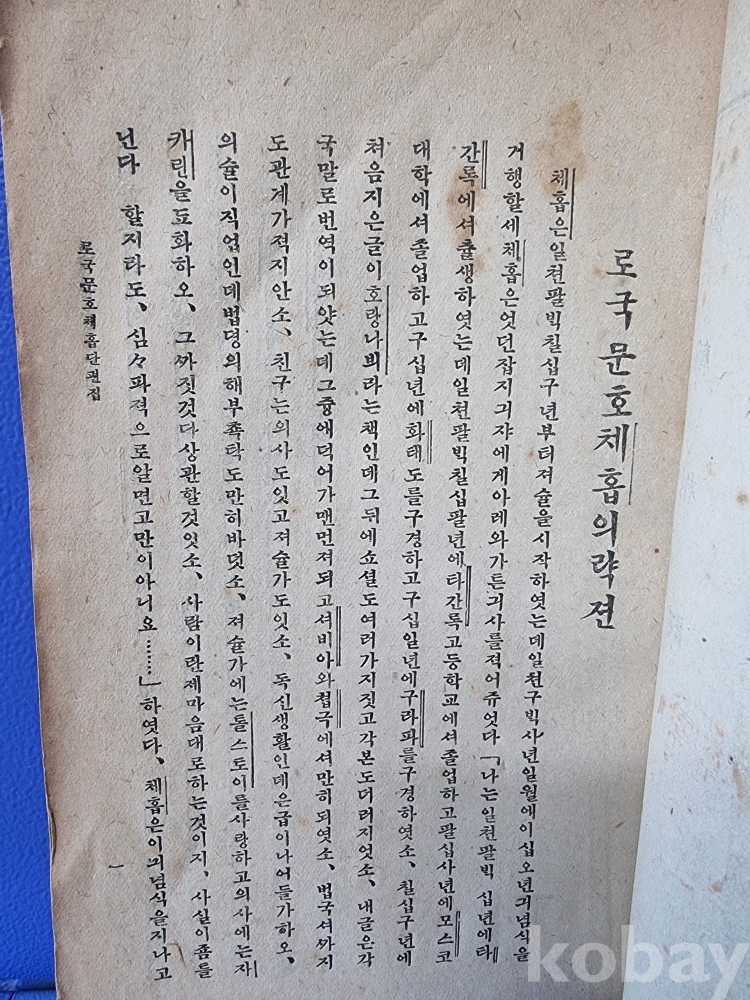 로국문호체홉의략젼
체홉은일쳔팔빅칠십구년부터져슐을시작하엿는데일쳔구빅사년일월에이십오년긔념식을
거행할세체홉은엇던잡지긔쟈에게아레와가튼긔사를적어쥬엇다「나는일쳔팔빅 십년에타
간록에셔츌생하엿는데일쳔팔빅칠십팔년에타간록고등학교에셔졸업하고팔십사년에모스코
대학에셔졸업하고구십년에화태도를구경하고구십일년에구라파를구경하엿소、칠십구년에
쳐음지은글이호랑나븨라는책인데그뒤에쇼셜도여러가지짓고각본도더러지엇소、내글은각
국말로번역이되얏는데그즁에덕어가맨먼져되고셔비아와쳡극에셔만히되엿소、법국셔까지
도관계가적지안소、친구는의사도잇고져슐가도잇소、독신생활인데은급이나어들가하오、
의슐이직업인데법뎡의해부쵹탁도만히바덧소、져슐가에는톨스토이를사랑하고의사에는자
캬린을됴화하오、그까짓것다상관할것잇소、사람이란제마음대로하는것이지、사실이좀틀
닌다 할지라도、심々파적으로알면고만이아니요………」하엿다、체홉은이긔념식을지나고
로국문호체홉단편집
一
kobay